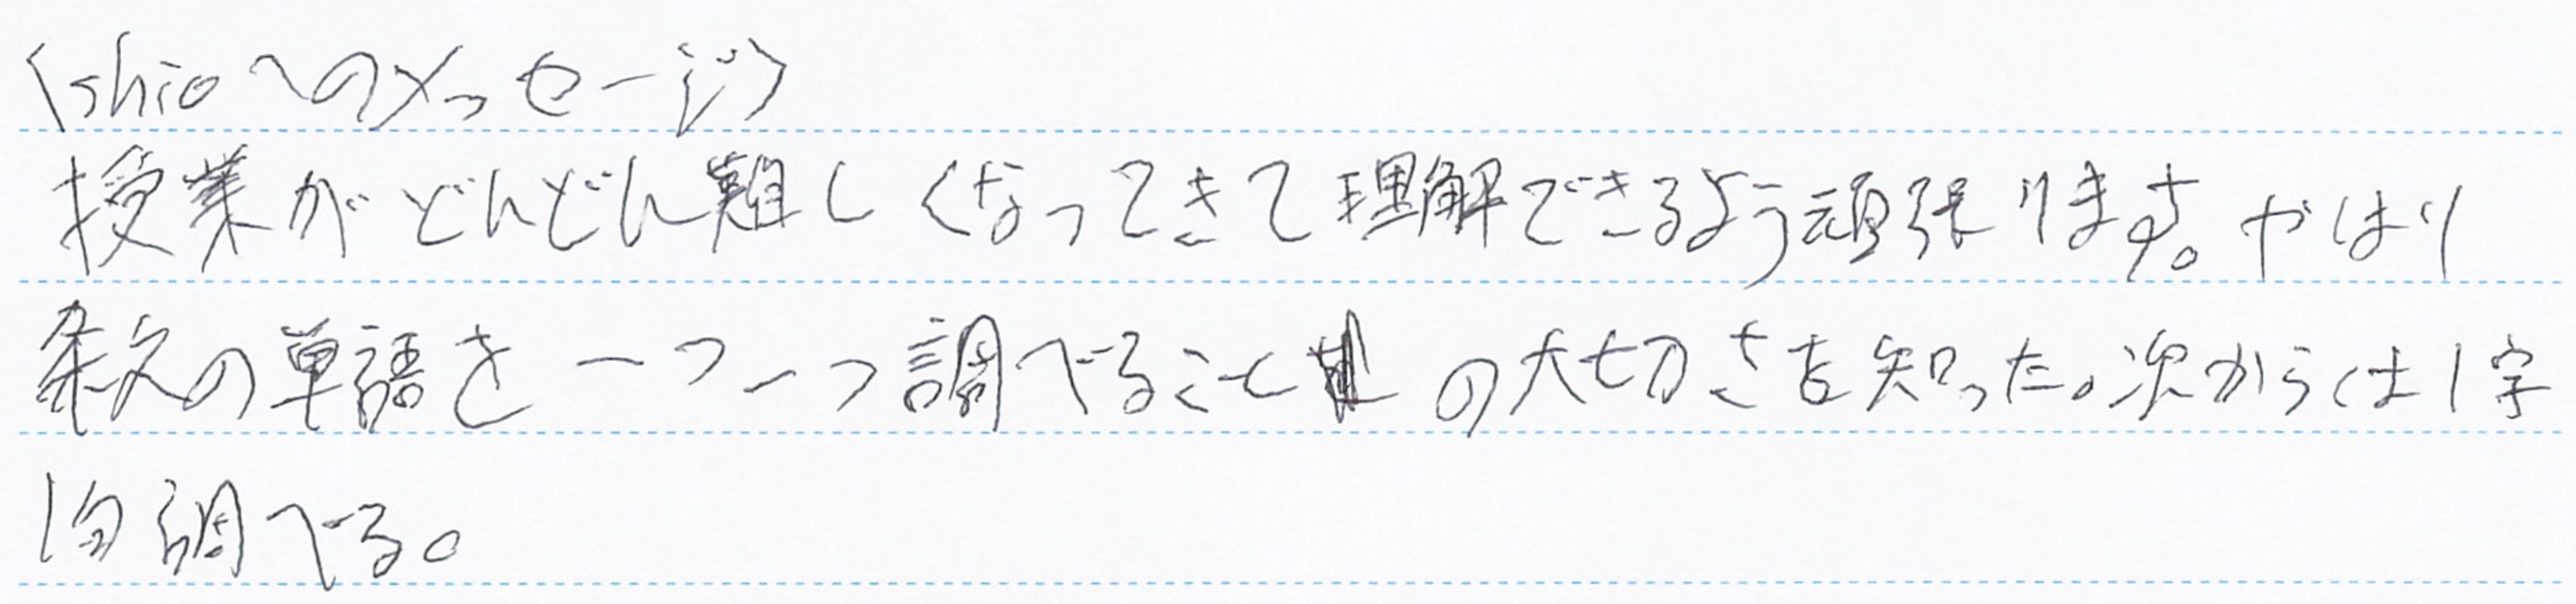 〈shioへのメッセージ〉
授業がどんどん難しくなってきて理解できるよう頑張ります。やはり
条文の単語を一つ一つ調べることの大切さを知った。次からは1字
1句調べる。